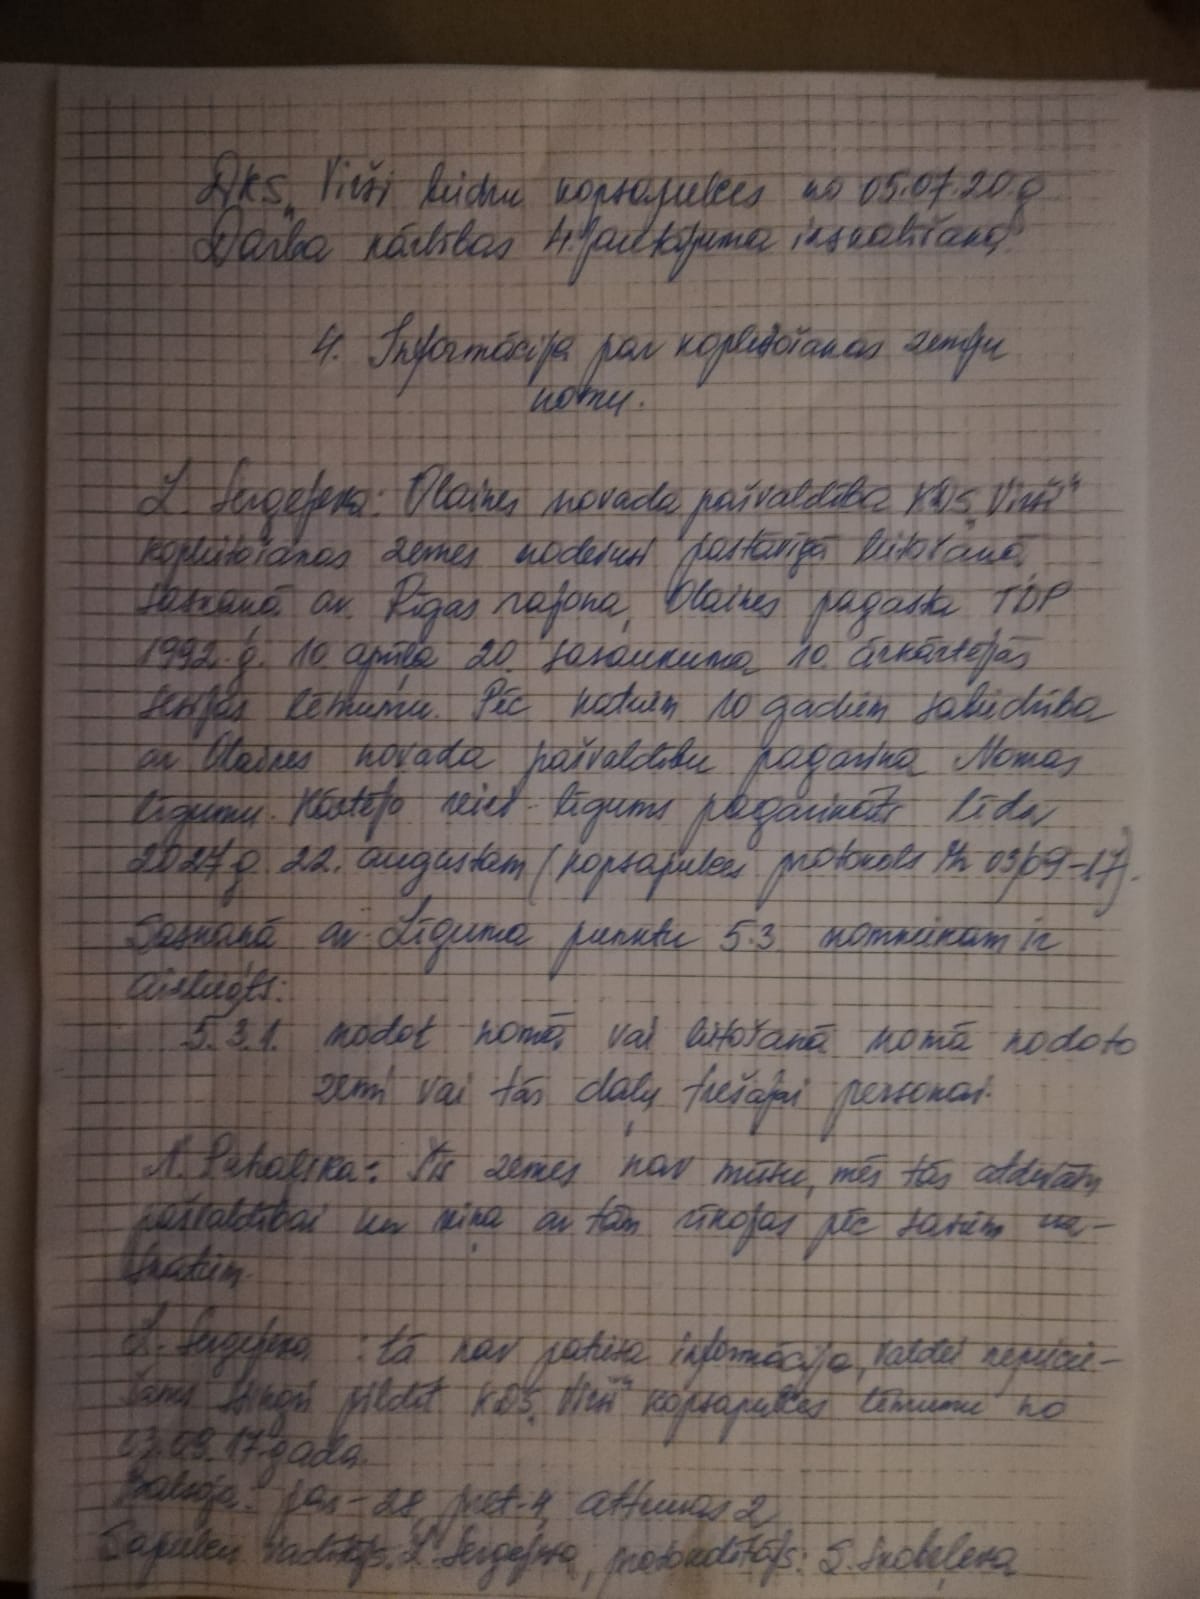 DKS „Virši biedru kopsapulces no 05.07.20.g
Darba kārtības 4. jautājuma izskatīšana
4. Informācija par koplietošanas zemju
nomu.
L. Sergejeva: Olaines novada pašvaldība KDS „Virši“
koplietošanas zemes nodevusi pastāvīgā lietošanā
saskaņā ar Rīgas rajona, Olaines pagasta TDP
1992.g. 10. aprīļa 20. sasaukuma 10. ārkārtējās
sesijas lēmumu. Pēc katriem 10 gadiem sabiedrība
ar Olaines novada pašvaldību pagarina Nomas
līgumu. Kārtējo reizi līgums pagarināts līdz
2027.g. 22. augustam (kopsapulces protokols Nr 03/09-17).
Saskaņā ar Līguma punktu 5.3 nomniekam ir
aizliegts:
5.3.1. nodot nomā vai lietošanā nomā nodoto
zemi vai tās daļu trešajai personai.
N. Puhaļska: Šīs zemes nav mūsu, mēs tās atdevām
pašvaldībai un viņa ar tām rīkojas pēc saviem ie-
skatiem.
L. Sergejeva: tā nav patiesa informācija, Valdei nepiecie-
šams stingri pildīt KDS „Virši“ kopsapulces lēmumu no
03.09.17.gada.
Balsoja: par - 28 pret - 4, atturas 2
Sapulces vadītājs: L. Sergejeva, protokolētājs: S. Skobeļeva